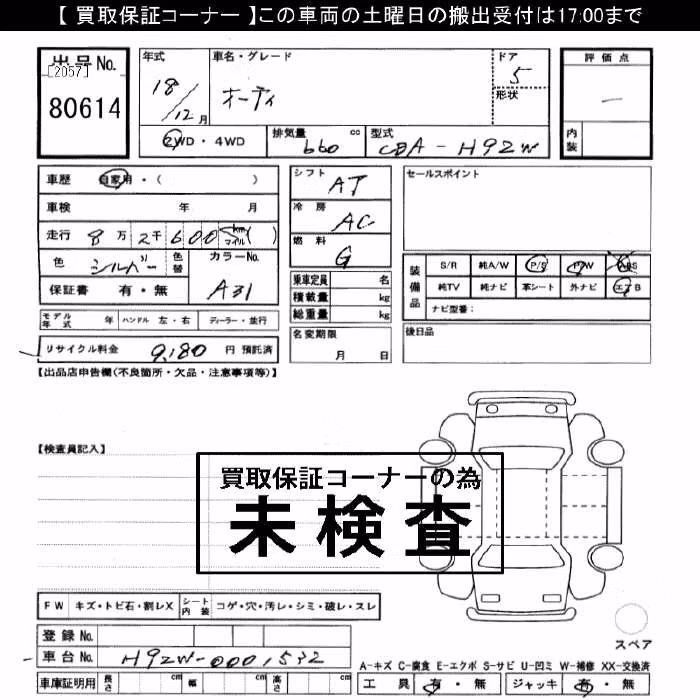 【 買取保証コーナー 】この車両の土曜日の搬出受付は17:00まで
出品No.
[2057]
80614
年式
18/12月
車名・グレード
オーティ
ドア
5
形状
評価点
—
内装
2WD・4WD
排気量
660 cc
型式
CBA-H92W
車歴 自家用・( )
車検 年 月
走行 8万2千600 km マイル( )
色 シルバー 色替
カラーNo.
A31
保証書 有・無
シフト
AT
冷房
AC
燃料
G
乗車定員 名
積載量 kg
総重量 kg
名変期限
月 日
セールスポイント
装備品
S/R 純A/W P/S P/W ABS
純TV 純ナビ 革シート 外ナビ エアB
ナビ型番:
後日品
モデル年式 年 ハンドル 左・右 ディーラー・並行
リサイクル料金 9,180 円 預託済
【出品店申告欄(不良箇所・欠品・注意事項等)】
【検査員記入】
買取保証コーナーの為
未検査
FW キズ・トビ石・割レX シート内装 コゲ・穴・汚レ・シミ・破レ・スレ
登録No.
車台No. H92W-0001532
車庫証明用 長さ cm 幅 cm 高さ cm
スペア
A-キズ C-腐食 E-エクボ S-サビ U-凹ミ W-補修 XX-交換済
工具 有・無 ジャッキ 有・無